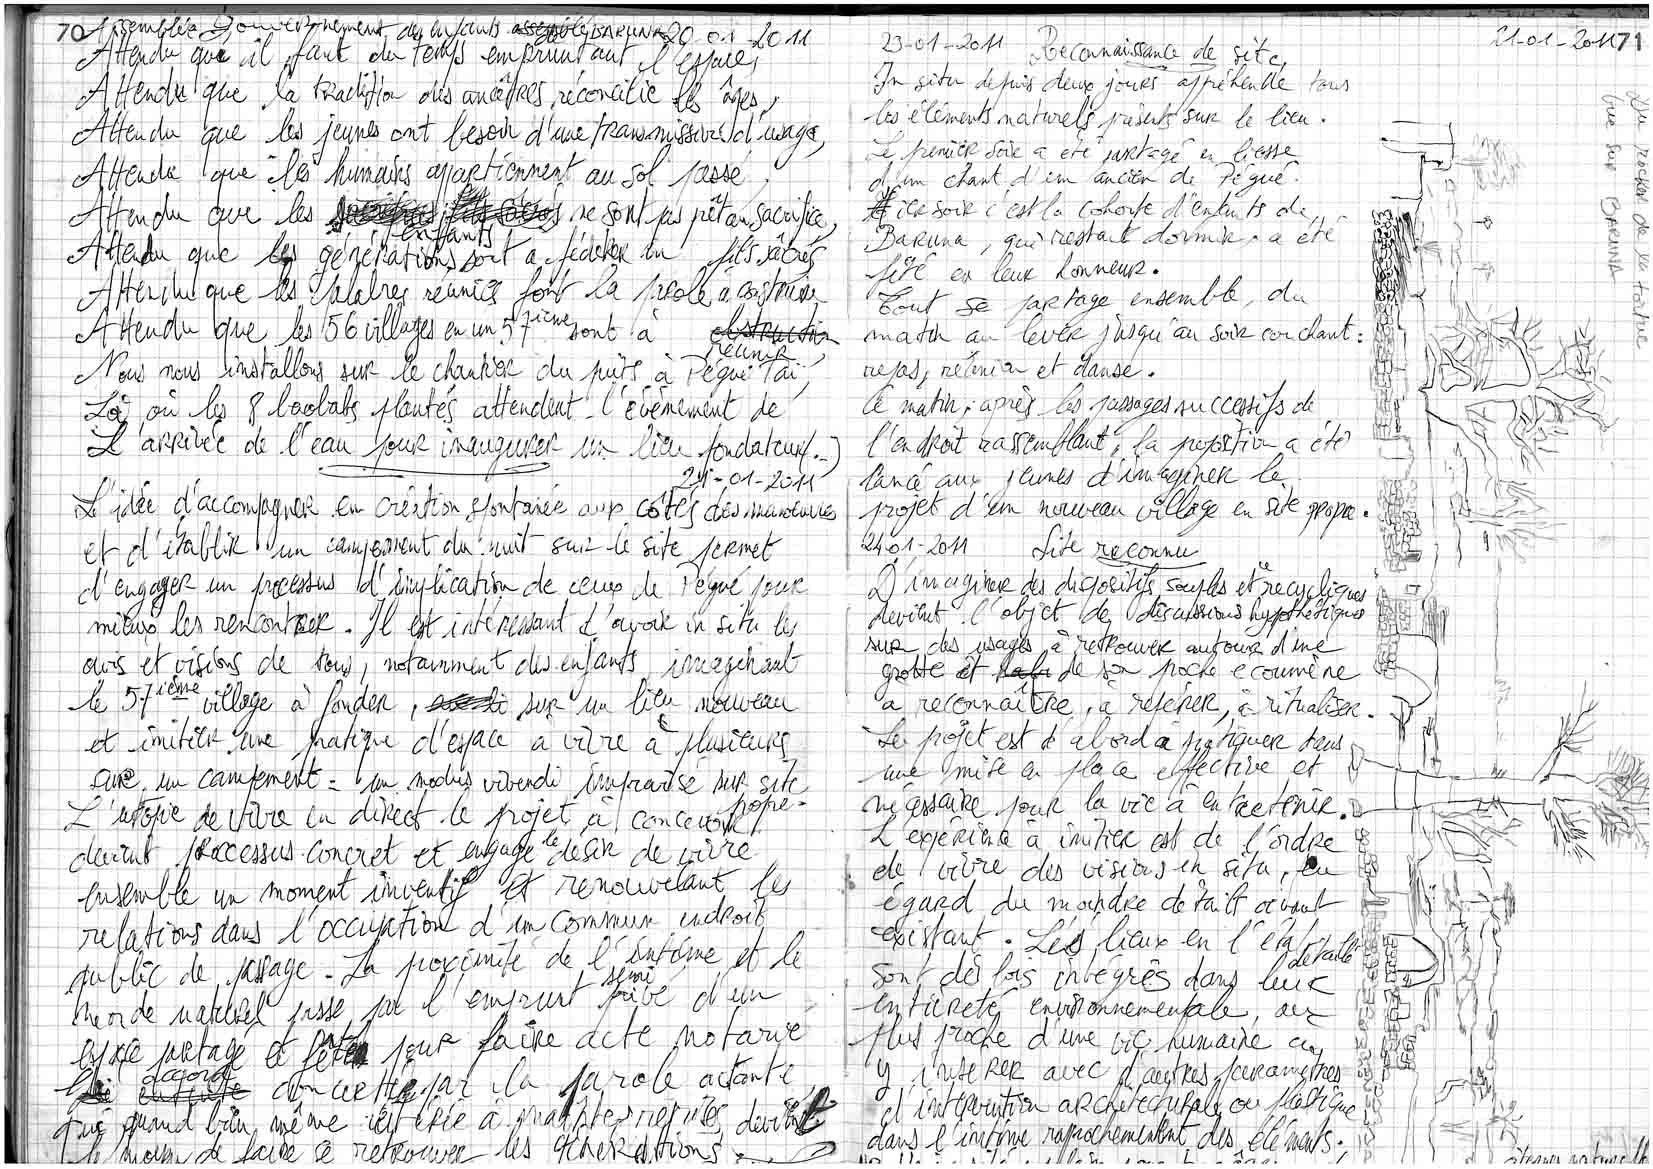 70 Assemblée Gouvernement des enfants BARUNA 20-01-2011
Attendu que il faut du temps empruntant l'espace,
Attendu que la tradition des ancêtres réconcilie les âges,
Attendu que les jeunes ont besoin d'une transmission d'usage,
Attendu que les humains appartiennent au sol passé,
Attendu que les enfants ne sont pas prêt au sacrifice,
Attendu que les générations sont a fédérer un fils sacrés
Attendu que les palabres réunies font la parole à construire
Attendu que les 56 villages en un 57ième sont à réunir,
Nous nous installons sur le chantier du puits à Pégué Taï,
Là où les 8 baobabs plantés attendent l'évènement de
L'arrivée de l'eau pour inaugurer un lieu fondateur.
21-01-2011
L'idée d'accompagner en création spontanée aux côtés des manœuvres
et d'établir un campement du nuit sur le site permet
d'engager un processus d'implication de ceux de Pégué pour
mieux les rencontrer. Il est intéressant d'avoir in situ les
avis et visions de tous, notamment des enfants imaginant
le 57ième village à fonder, sur un lieu nouveau
et initier une pratique d'espace a vivre à plusieurs
avec un campement = un modus vivendi improvisé sur site
propre.
L'utopie de vivre en direct le projet à concevoir
devient processus concret et engage le désir de vivre
ensemble un moment inventif et renouvelant les
relations dans l'occupation d'un commun endroit
public de passage. La proximité de l'intime et le
monde naturel passe par l'emprunt semi privé d'un
espace partagé et pour faire acte notarié
accord concerté par la parole actante
qui quand bien même devient
le moyen de faire se retrouver les générations.
23-01-2011 Reconnaissance de site
In situ depuis deux jours appréhende tous
les éléments naturels présents sur le lieu.
Le premier soir a été partagé en liesse
d'un chant d'un ancien de Pégué.
Hier soir c'est la cohorte d'enfants de
Baruna, qui restait dormir, a été
fêté en leur honneur.
Tout se partage ensemble, du
matin au lever jusqu'au soir couchant :
repas, réunion et danse.
Ce matin, après les passages successifs de
l'endroit rassemblant, la proposition a été
lancé aux jeunes d'imaginer le
projet d'un nouveau village en site propre.
24-01-2011 Site reconnu
D'imaginer des dispositifs souples et recycliques
devient l'objet de discussions hypothétiques
sur des usages à retrouver autour d'une
grotte et de son proche ecoumène
a reconnaître, à repérer, à ritualiser.
Le projet est d'abord à pratiquer dans
une mise en place effective et
nécessaire pour la vie à entretenir.
L'expérience à initier est de l'ordre
de vivre des visions in situ, eu
égard du moindre détail avant
existant. Les lieux en l'état détaillé
sont dès lors intégrés dans leur
entiereté environnementale, au
plus proche d'une vie humaine à
y insérer avec d'autres paramètres
d'intervention architecturale ou plastique
dans l'intime rapprochement des éléments.
21-01-2011 71
Du rocher de la toiture
vue sur BARUNA